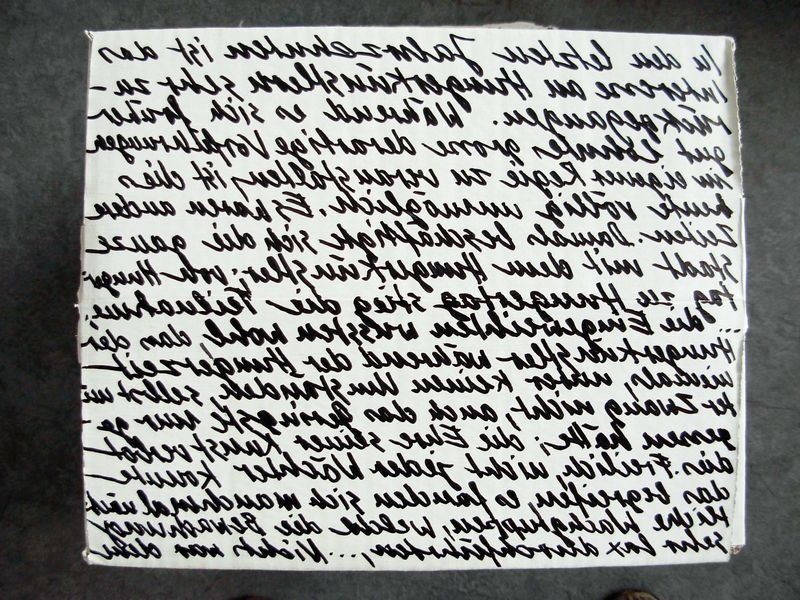 In den letzten Jahrzehnten ist das
Interesse an Hungerkünstlern sehr zu-
rückgegangen. Während es sich früher
gut lohnte, grosse derartige Vorführungen
in eigener Regie zu veranstalten, ist dies
heute völlig unmöglich. Es waren andere
Zeiten. Damals beschäftigte sich die ganze
Stadt mit dem Hungerkünstler; von Hunger-
tag zu Hungertag stieg die Teilnahme.
... die Eingeweihten wussten wohl, dass der
Hungerkünstler während der Hungerzeit
niemals, unter keinen Umständen, selbst un-
ter Zwang nicht, auch das Geringste nur ge-
gessen hätte; die Ehre seiner Kunst verbot
dies. Freilich, nicht jeder Wächter konnte
das begreifen, es fanden sich manchmal nächt-
liche Wachgruppen, welche die Bewachung
sehr lax durchführten, ... Nichts war dem